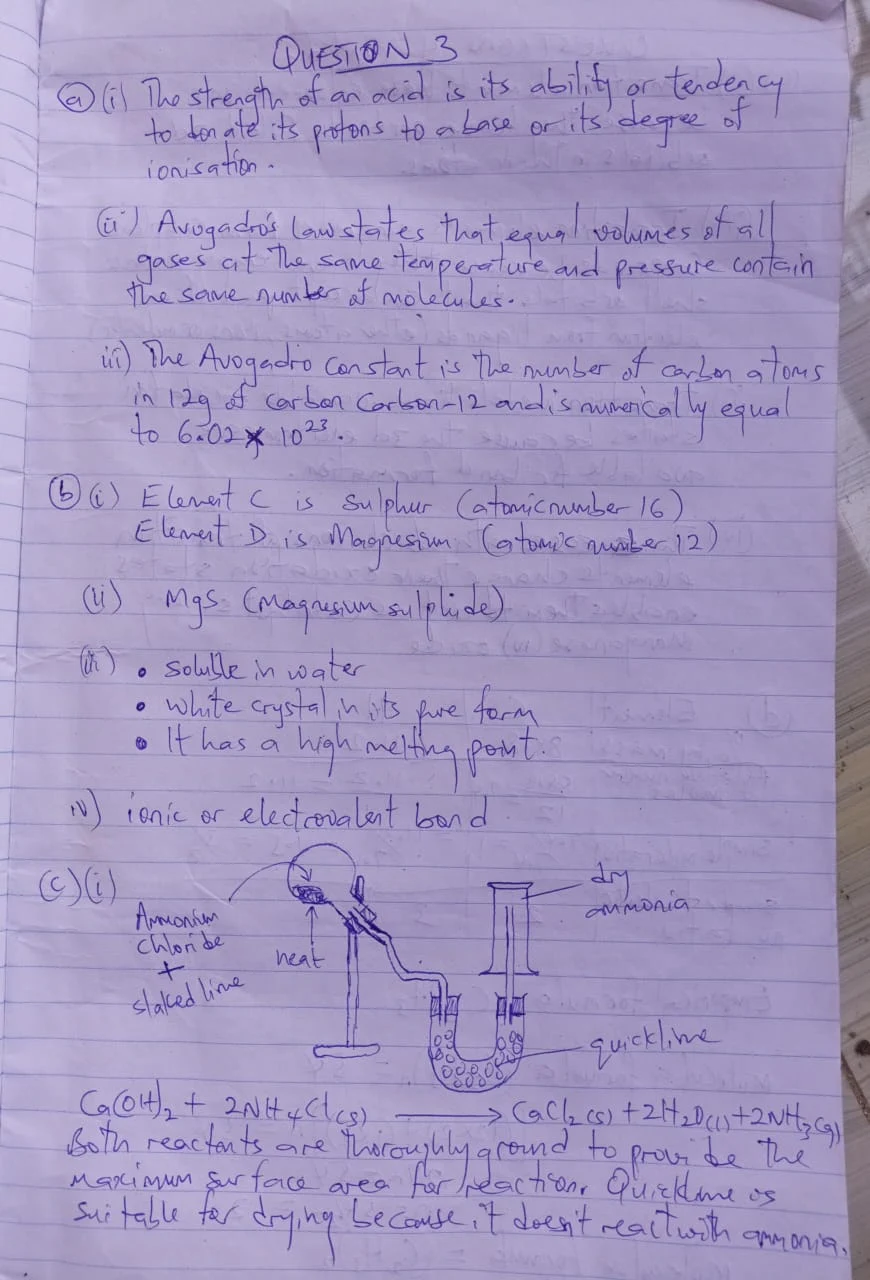 QUESTION 3
(a) (i) The strength of an acid is its ability or tendency
to donate its protons to a base or its degree of
ionisation.
(ii) Avogadro's law states that equal volumes of all
gases at the same temperature and pressure contain
the same number of molecules.
iii) The Avogadro constant is the number of carbon atoms
in 12g of carbon Carbon-12 and is numerically equal
to 6.02 x 10²³.
(b) (i) Element C is sulphur (atomic number 16)
Element D is Magnesium (atomic number 12)
(ii) MgS (Magnesium sulphide)
(iii) • soluble in water
• white crystal in its pure form
• It has a high melting point.
iv) ionic or electrovalent bond
(c) (i)
Ammonium
chloride
+
slaked lime
heat
dry
ammonia
quicklime
Ca(OH)₂ + 2NH₄Cl(s) ⟶ CaCl₂(s) + 2H₂O(l) + 2NH₃(g)
Both reactants are thoroughly ground to provide the
maximum surface area for reaction. Quicklime is
suitable for drying because it doesn't react with ammonia.